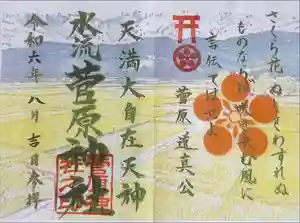 さくら花 ぬしをわすれぬ
ものならば 吹き来む風に
言伝てはせよ
菅原道真公
天満大自在天神
水流菅原神社
令和六年八月吉日奉拝